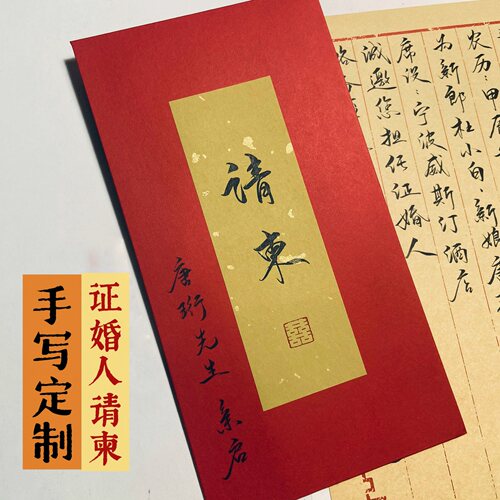 请柬
囍
唐珩先生 亲启
农历:甲辰
为新郎杜小白、新娘
席设:宁波威斯汀酒店
诚邀您担任证婚人
证婚人请柬
手写定制